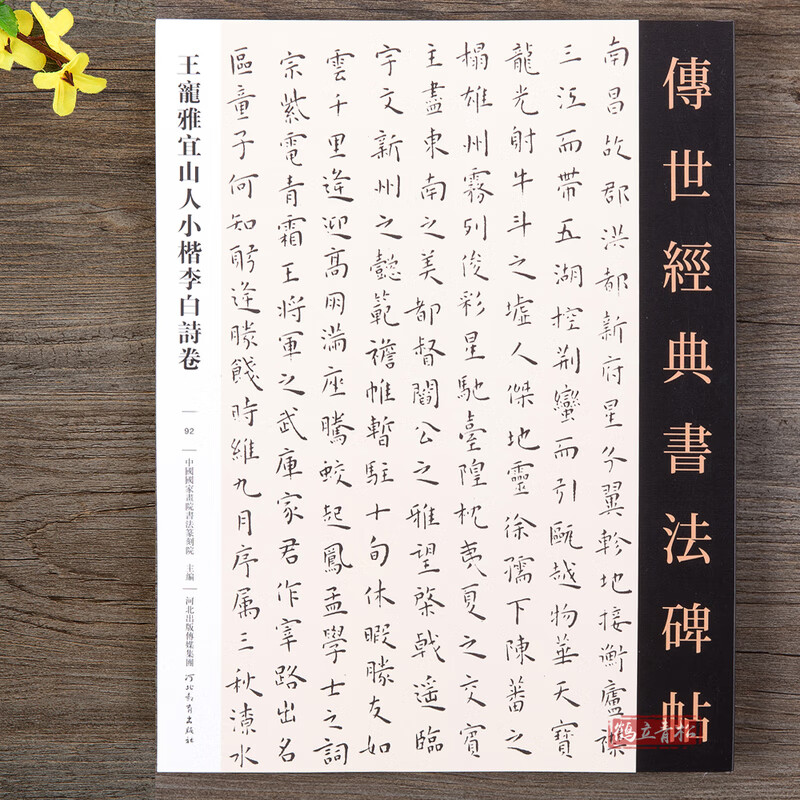 傳世經典書法碑帖
南昌故郡洪都新府星分翼軫地接衡廬襟
三江而帶五湖控荆蠻而引甌越物華天寶
龍光射牛斗之墟人傑地靈徐孺下陳蕃之
榻雄州霧列俊彩星馳臺隍枕夷夏之交賓
主盡東南之美都督閻公之雅望棨戟遥臨
宇文新州之懿範襜帷暫駐十旬休暇勝友如
雲千里逢迎高朋滿座騰蛟起鳳孟學士之詞
宗紫電青霜王將軍之武庫家君作宰路出名
區童子何知躬逢勝餞時維九月序属三秋潦水
王寵雅宜山人小楷李白詩卷
92
中國國家畫院書法篆刻院 主編
河北出版傳媒集團
河北教育出版社
鶴立青松